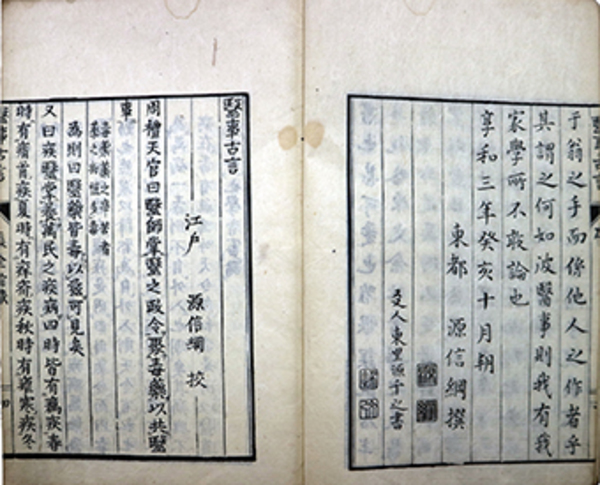 于翁之手而係他人之作者乎
其謂之何如彼醫事則我有我
家學所不敢論也
享和三年癸亥十月朔
東都 源信綱撰
友人東里源千之書
醫事古言
江戶 源信綱 校
周禮天官曰醫師掌醫之政令聚毒藥以共醫
事
毒藥藥之辛苦者
藥之物恒多毒
為則曰醫藥皆毒以茲可見矣
又曰疾醫掌養萬民之疾病四時皆有癘疾春
時有痟首疾夏時有痒疥疾秋時有瘧寒疾冬
醫事古言